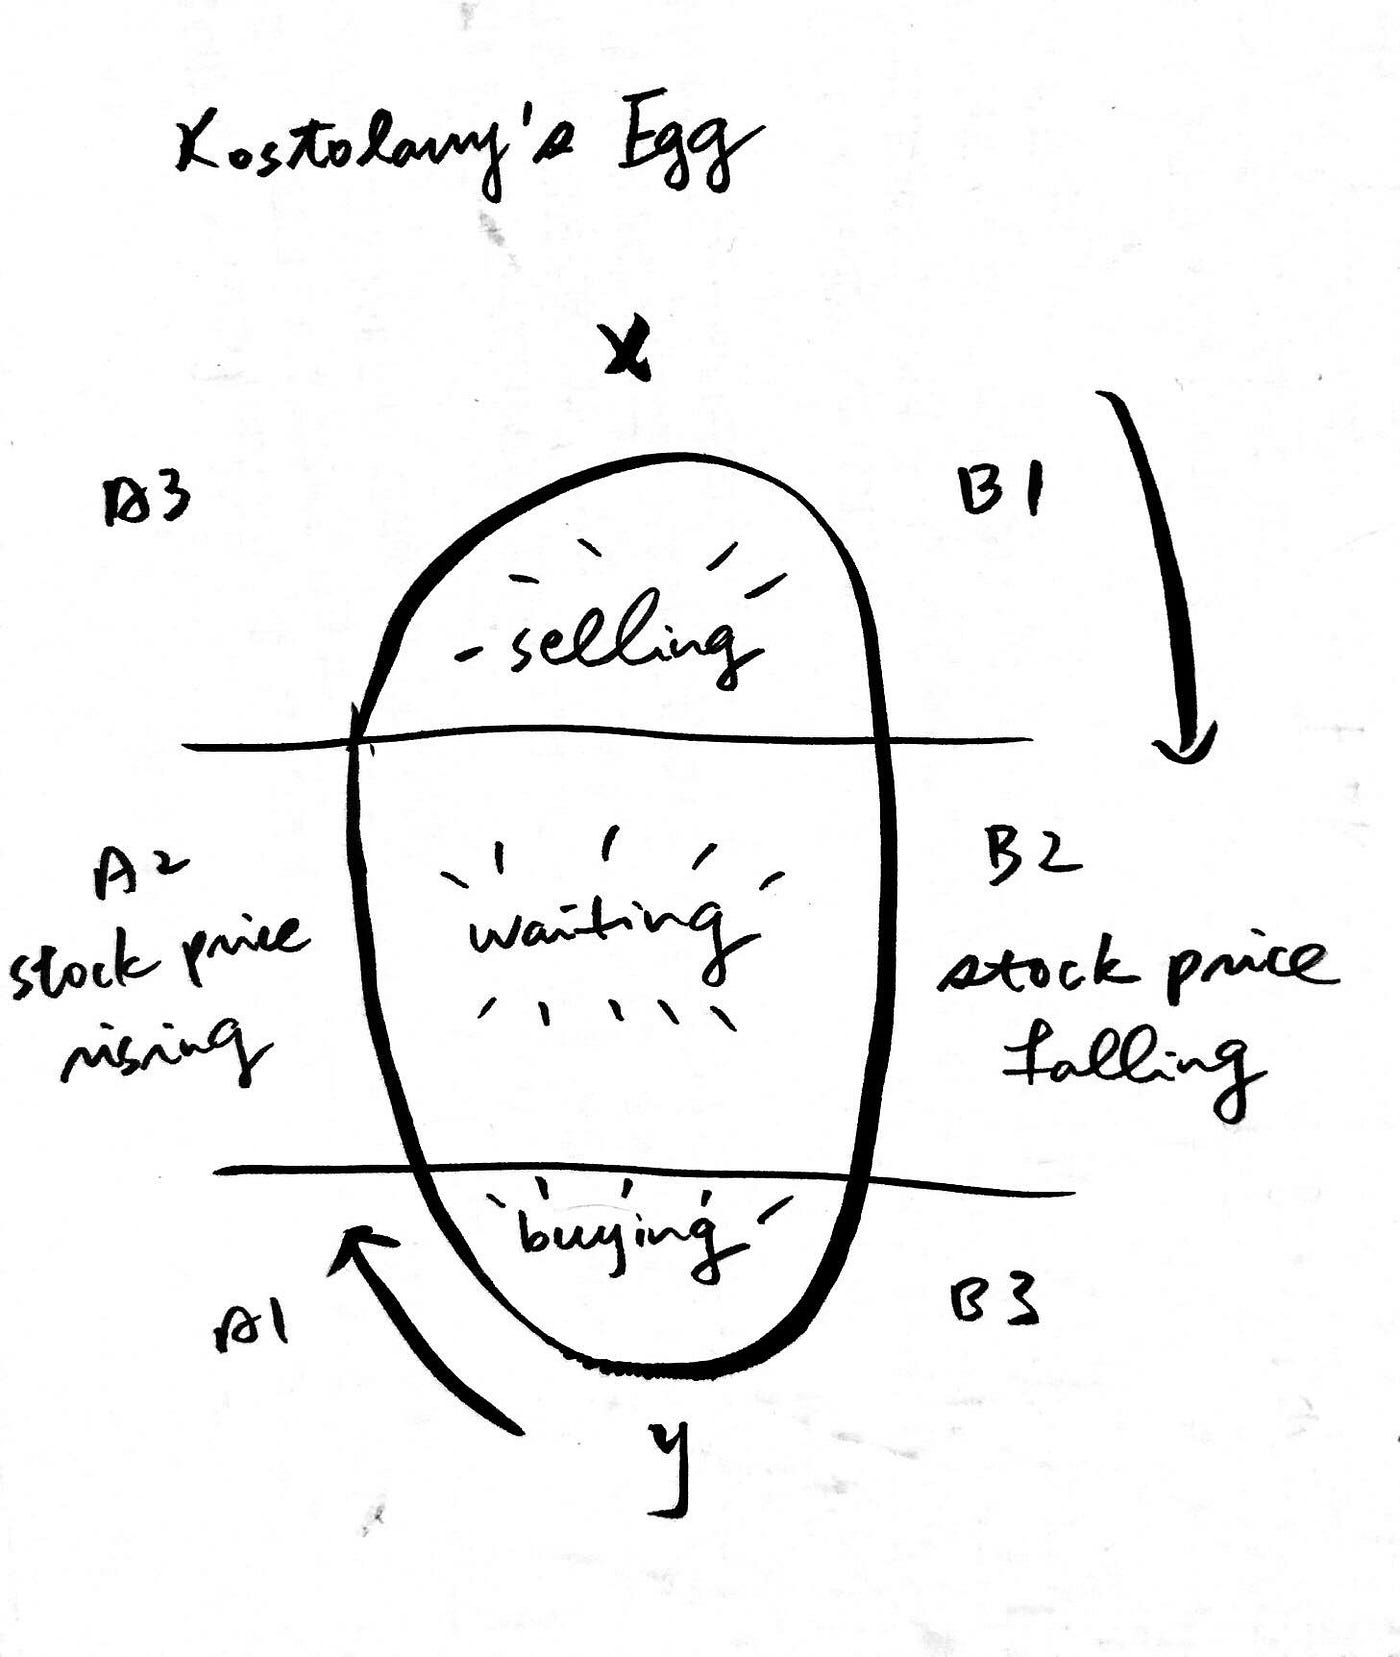 Kostolany's Egg
X
A3
B1
selling
A2
stock price
rising
waiting
B2
stock price
falling
buying
A1
B3
y